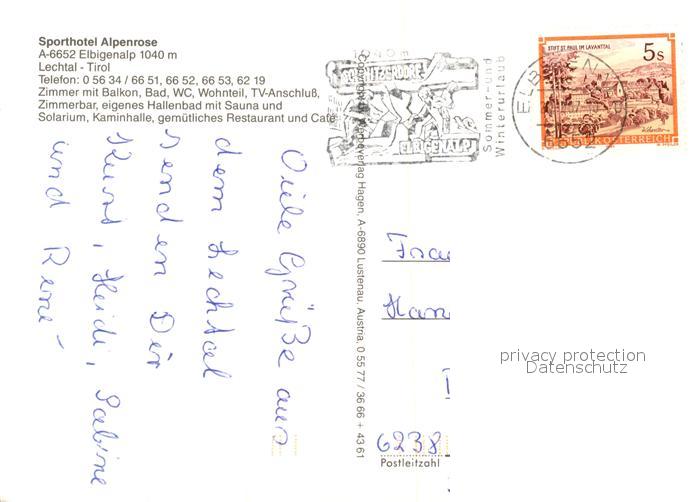 Sporthotel Alpenrose
A-6652 Elbigenalp 1040 m
Lechtal - Tirol
Telefon: 0 56 34 / 66 51, 66 52, 66 53, 62 19
Zimmer mit Balkon, Bad, WC, Wohnteil, TV-Anschluß,
Zimmerbar, eigenes Hallenbad mit Sauna und
Solarium, Kaminhalle, gemütliches Restaurant und Café
Viele Grüße aus
dem Lechtal
senden Dir
Kurt, Heidi, Sabine
und René
Verlag Hagen, A-6890 Lustenau, Austria, 0 55 77 / 36 66 + 43 61
1040m
ELBIGENALP
Sommer- und
Winterurlaub
STIFT ST. PAUL IM LAVANTTAL
5s
REPUBLIK ÖSTERREICH
Frau
Han
6238
Postleitzahl
privacy protection
Datenschutz